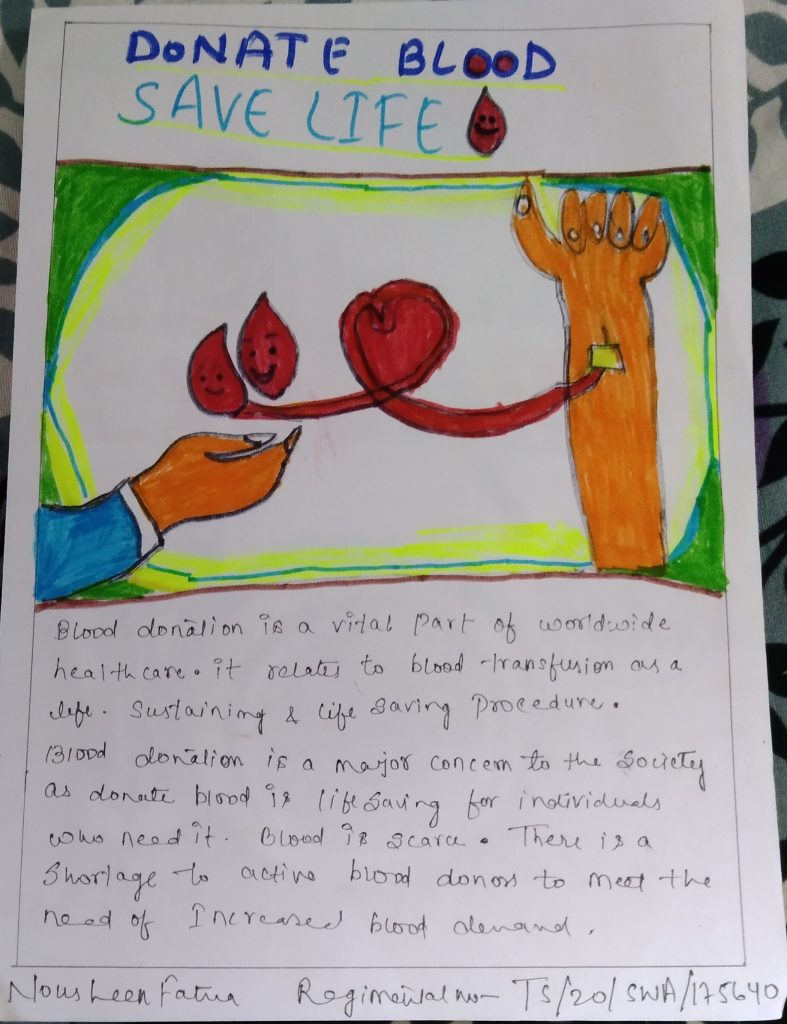 DONATE BLOOD
SAVE LIFE
Blood donation is a vital part of worldwide
healthcare. it relates to blood transfusion as a
life. Sustaining & life saving procedure.
Blood donation is a major concern to the society
as donate blood is lifesaving for individuals
who need it. Blood is scarce. There is a
shortage to active blood donors to meet the
need of Increased blood demand.
Nousheen Fatima Regimental no- TS/20/SWA/175640